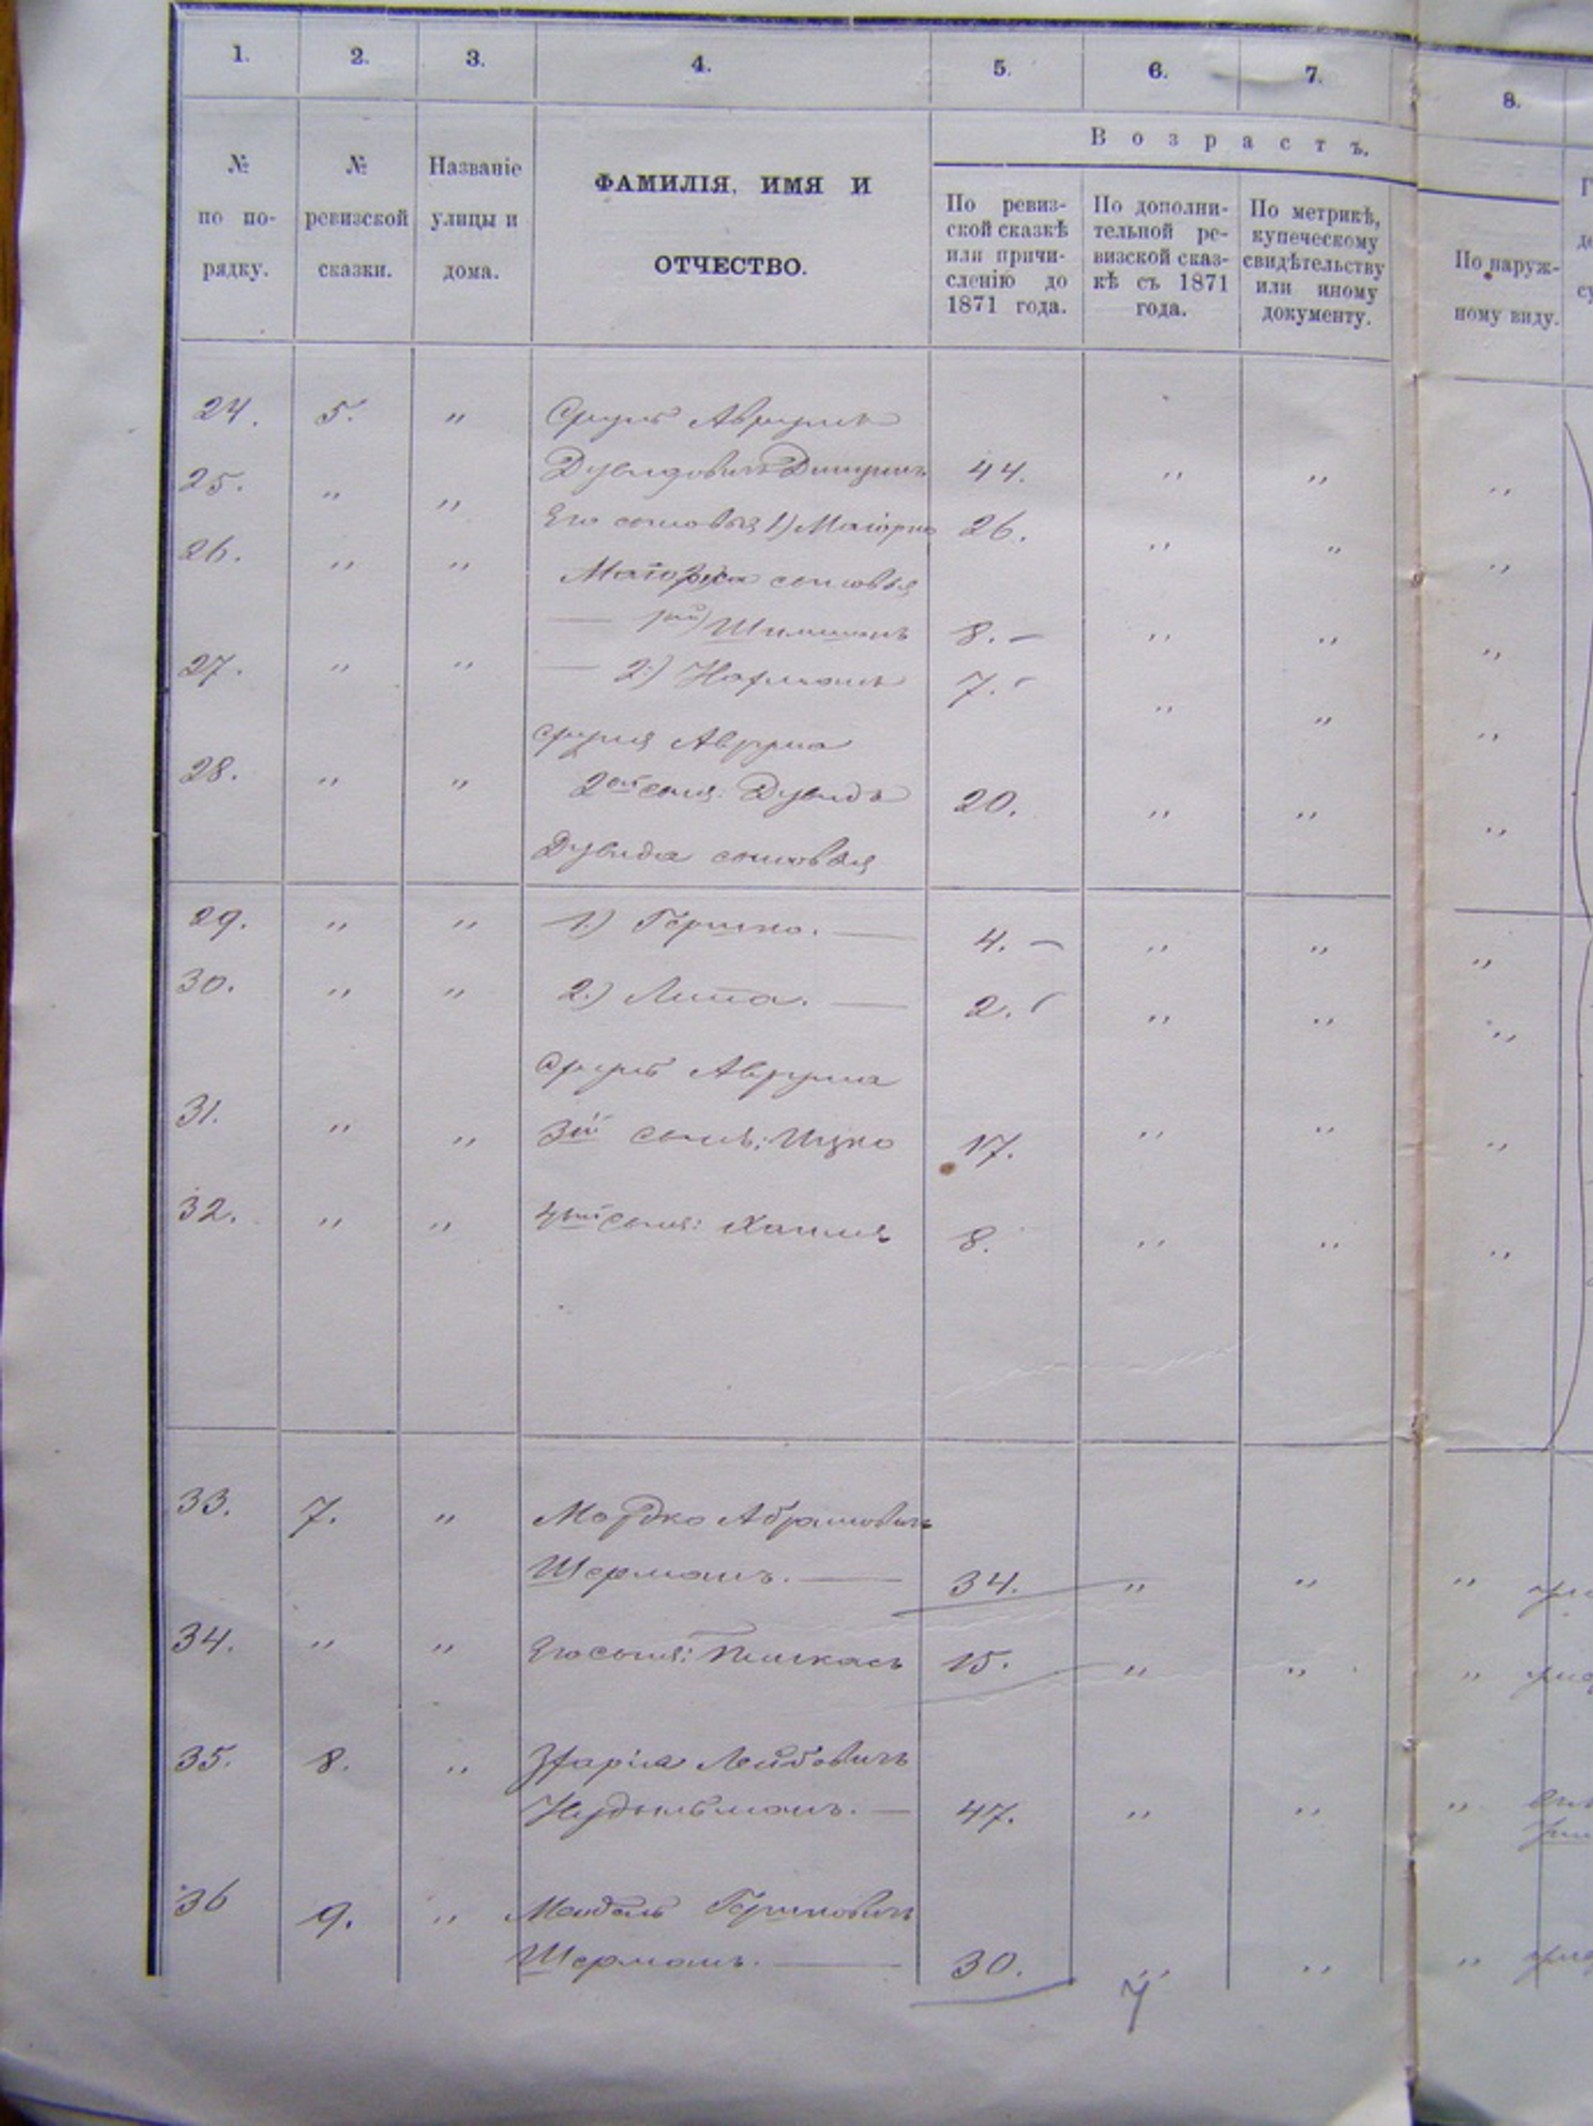 1. 2. 3. 4. 5. 6. 7. 8.
№ по по- рядку.
№ ревизской сказки.
Названіе улицы и дома.
ФАМИЛІЯ, ИМЯ И
ОТЧЕСТВО.
Возрастъ.
По ревиз-
ской сказкѣ
или причи-
сленію до
1871 года.
По дополни-
тельной ре-
визской сказ-
кѣ съ 1871
года.
По метрикѣ,
купеческому
свидѣтельству
или иному
документу.
По наруж-
ному виду.
24. 5. „ Сруль Аврумъ
Дувидовичъ 44. „ „ „
25. „ „ Его сыновья 1) 26. „ „ „
26. „ „ сыновья
1й) Шимшонъ 8. „ „ „
27. „ „ 2.) Нафтанъ 7. „ „ „
Сруля Аврума
28. „ „ 2ой сынъ: Дувидъ 20. „ „ „
Дувида сыновья
29. „ „ 1.) Гершко. 4. „ „ „
30. „ „ 2.) Липа. 2. „ „ „
Сруль Аврума
31. „ „ 3ій сынъ: Ицко 17. „ „ „
32. „ „ 4ый сынъ: Хаимъ 8. „ „ „
33. 7. „ Мордко Абрамовичъ
Шерманъ. 34. „ „ „
34. „ „ Его сынъ: Пинкасъ 15. „ „ „
35. 8. „ Лейбовичъ
Нудельманъ. 47. „ „ „
36 9. „ Мендель Гершковичъ
Шерманъ. 30. „ „ „